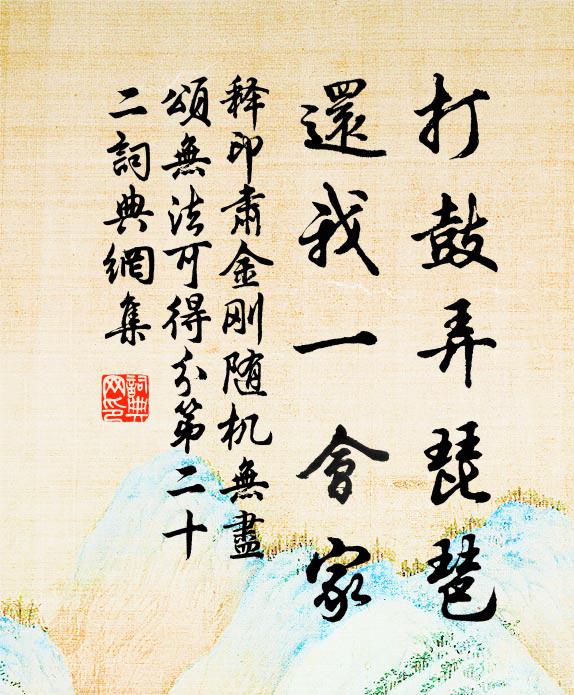 打鼓弄琵琶
還我一會家
釋印肅金刚随机無盡
頌無法可得分第二十
二詞典網集
詞典网印